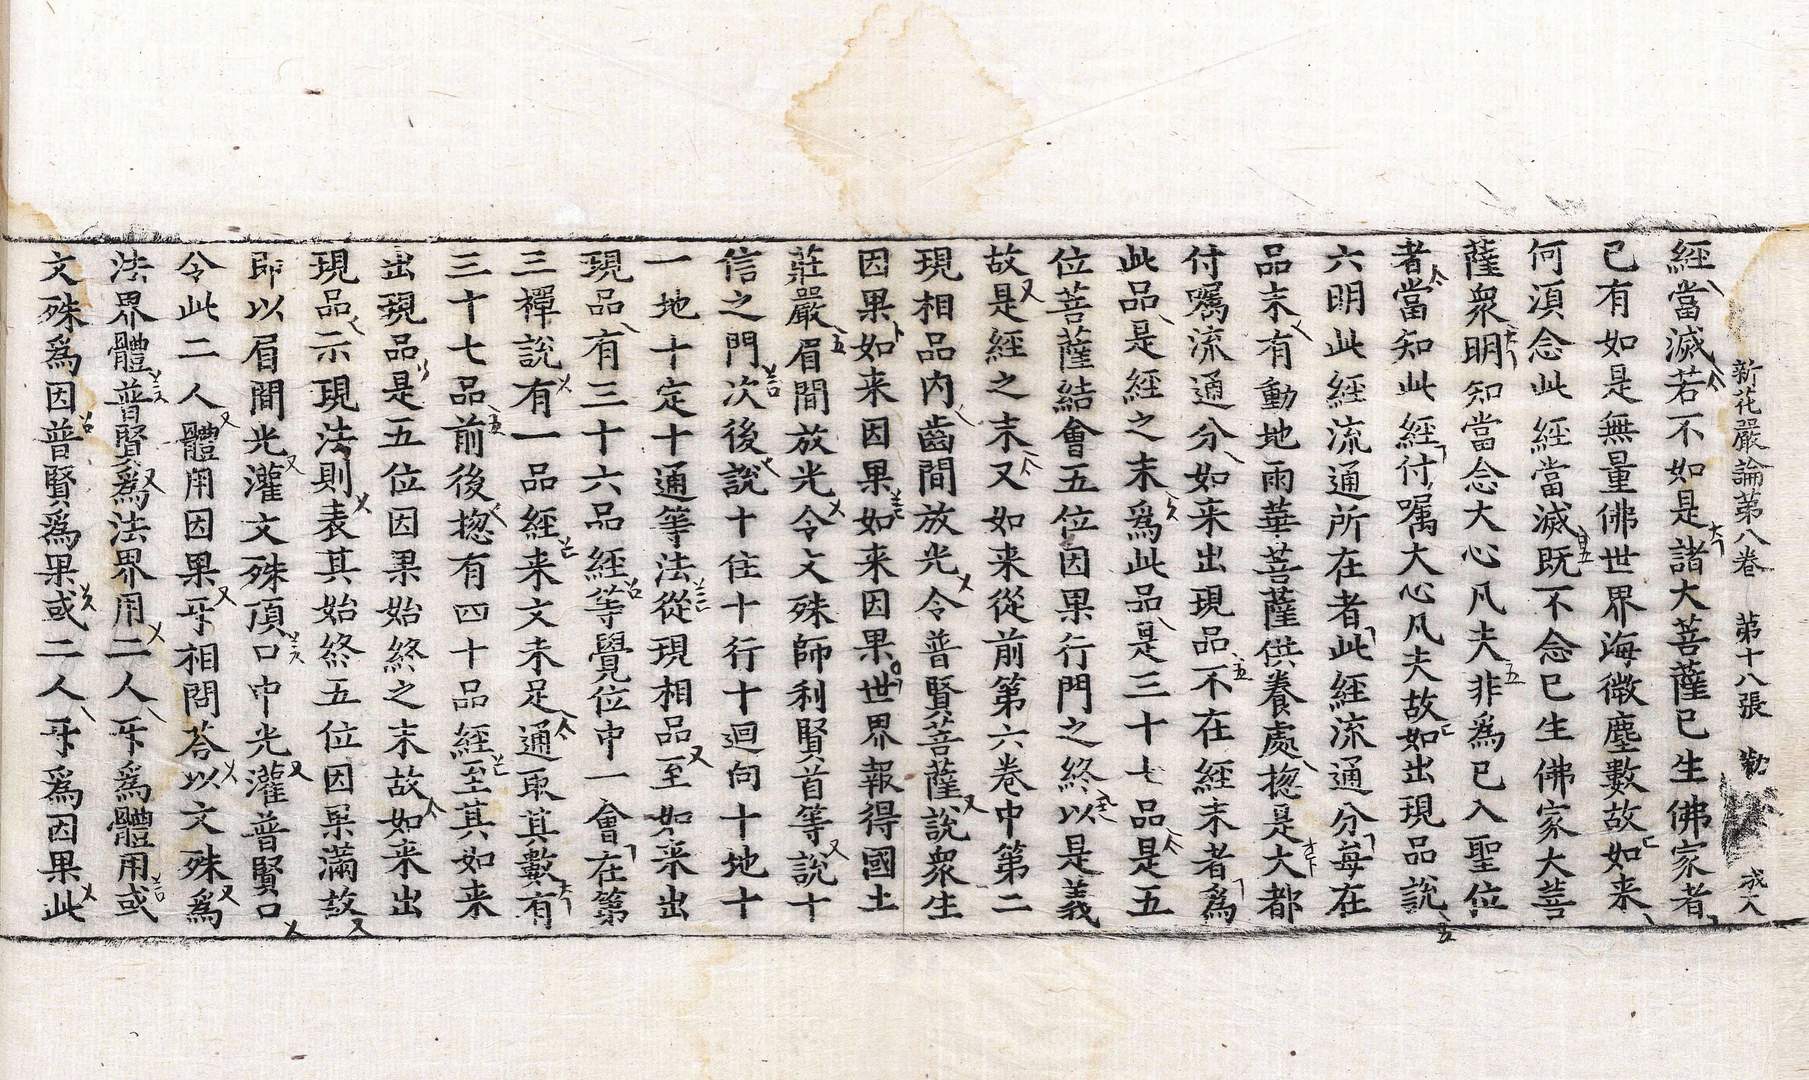 新花嚴論第八卷 第十八張 成大
經當滅若不如是諸大菩薩已生佛家者
已有如是無量佛世界海微塵數故如来
何湏念此經當滅旣不念已生佛家大菩
薩衆明知當念大心凡夫非爲已入聖位
者當知此經付嘱大心凡夫故如出現品說
六明此經流通所在者此經流通分每在
品末有動地雨華菩薩供養處揔是大都
付嘱流通分如来出現品不在經末者爲
此品是經之末爲此品是三十七品是五
位菩薩結會五位因果行門之終以是義
故是經之末又如来從前第六卷中第二
現相品内齒間放光令普賢菩薩說衆生
因果如来因果如来因果世界報得國土
莊嚴眉間放光令文殊師利賢首等說十
信之門次後說十住十行十迴向十地十
一地十定十通等法從現相品至如来出
現品有三十六品經等覺位中一會在第
三禪說有一品經来文未足通取其數有
三十七品前後揔有四十品經至其如来
出現品是五位因果始終之末故如来出
現品示現法則表其始終五位因果滿故
即以眉間光灌文殊頂口中光灌普賢口
令此二人體用因果㸦相問荅以文殊爲
法界體普賢爲法界用二人㸦爲體用或
文殊爲因普賢爲果或二人㸦爲因果此